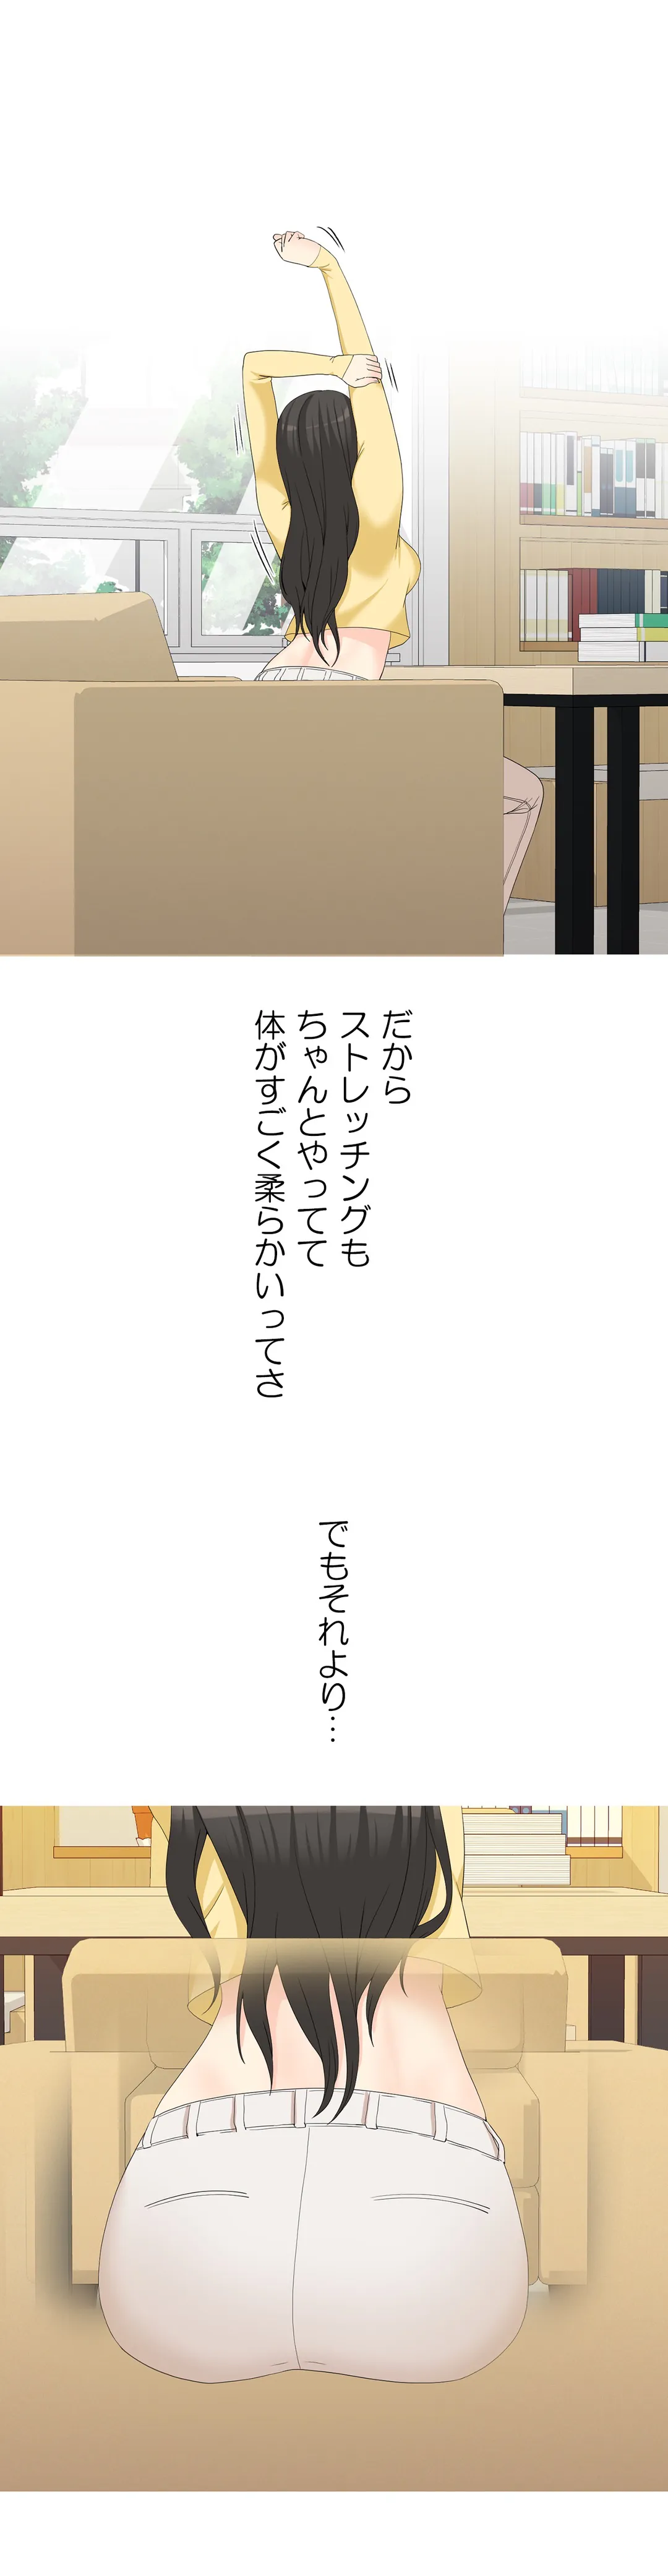 だから
ストレッチングも
ちゃんとやってて
体がすごく柔らかいってさ
でもそれより…